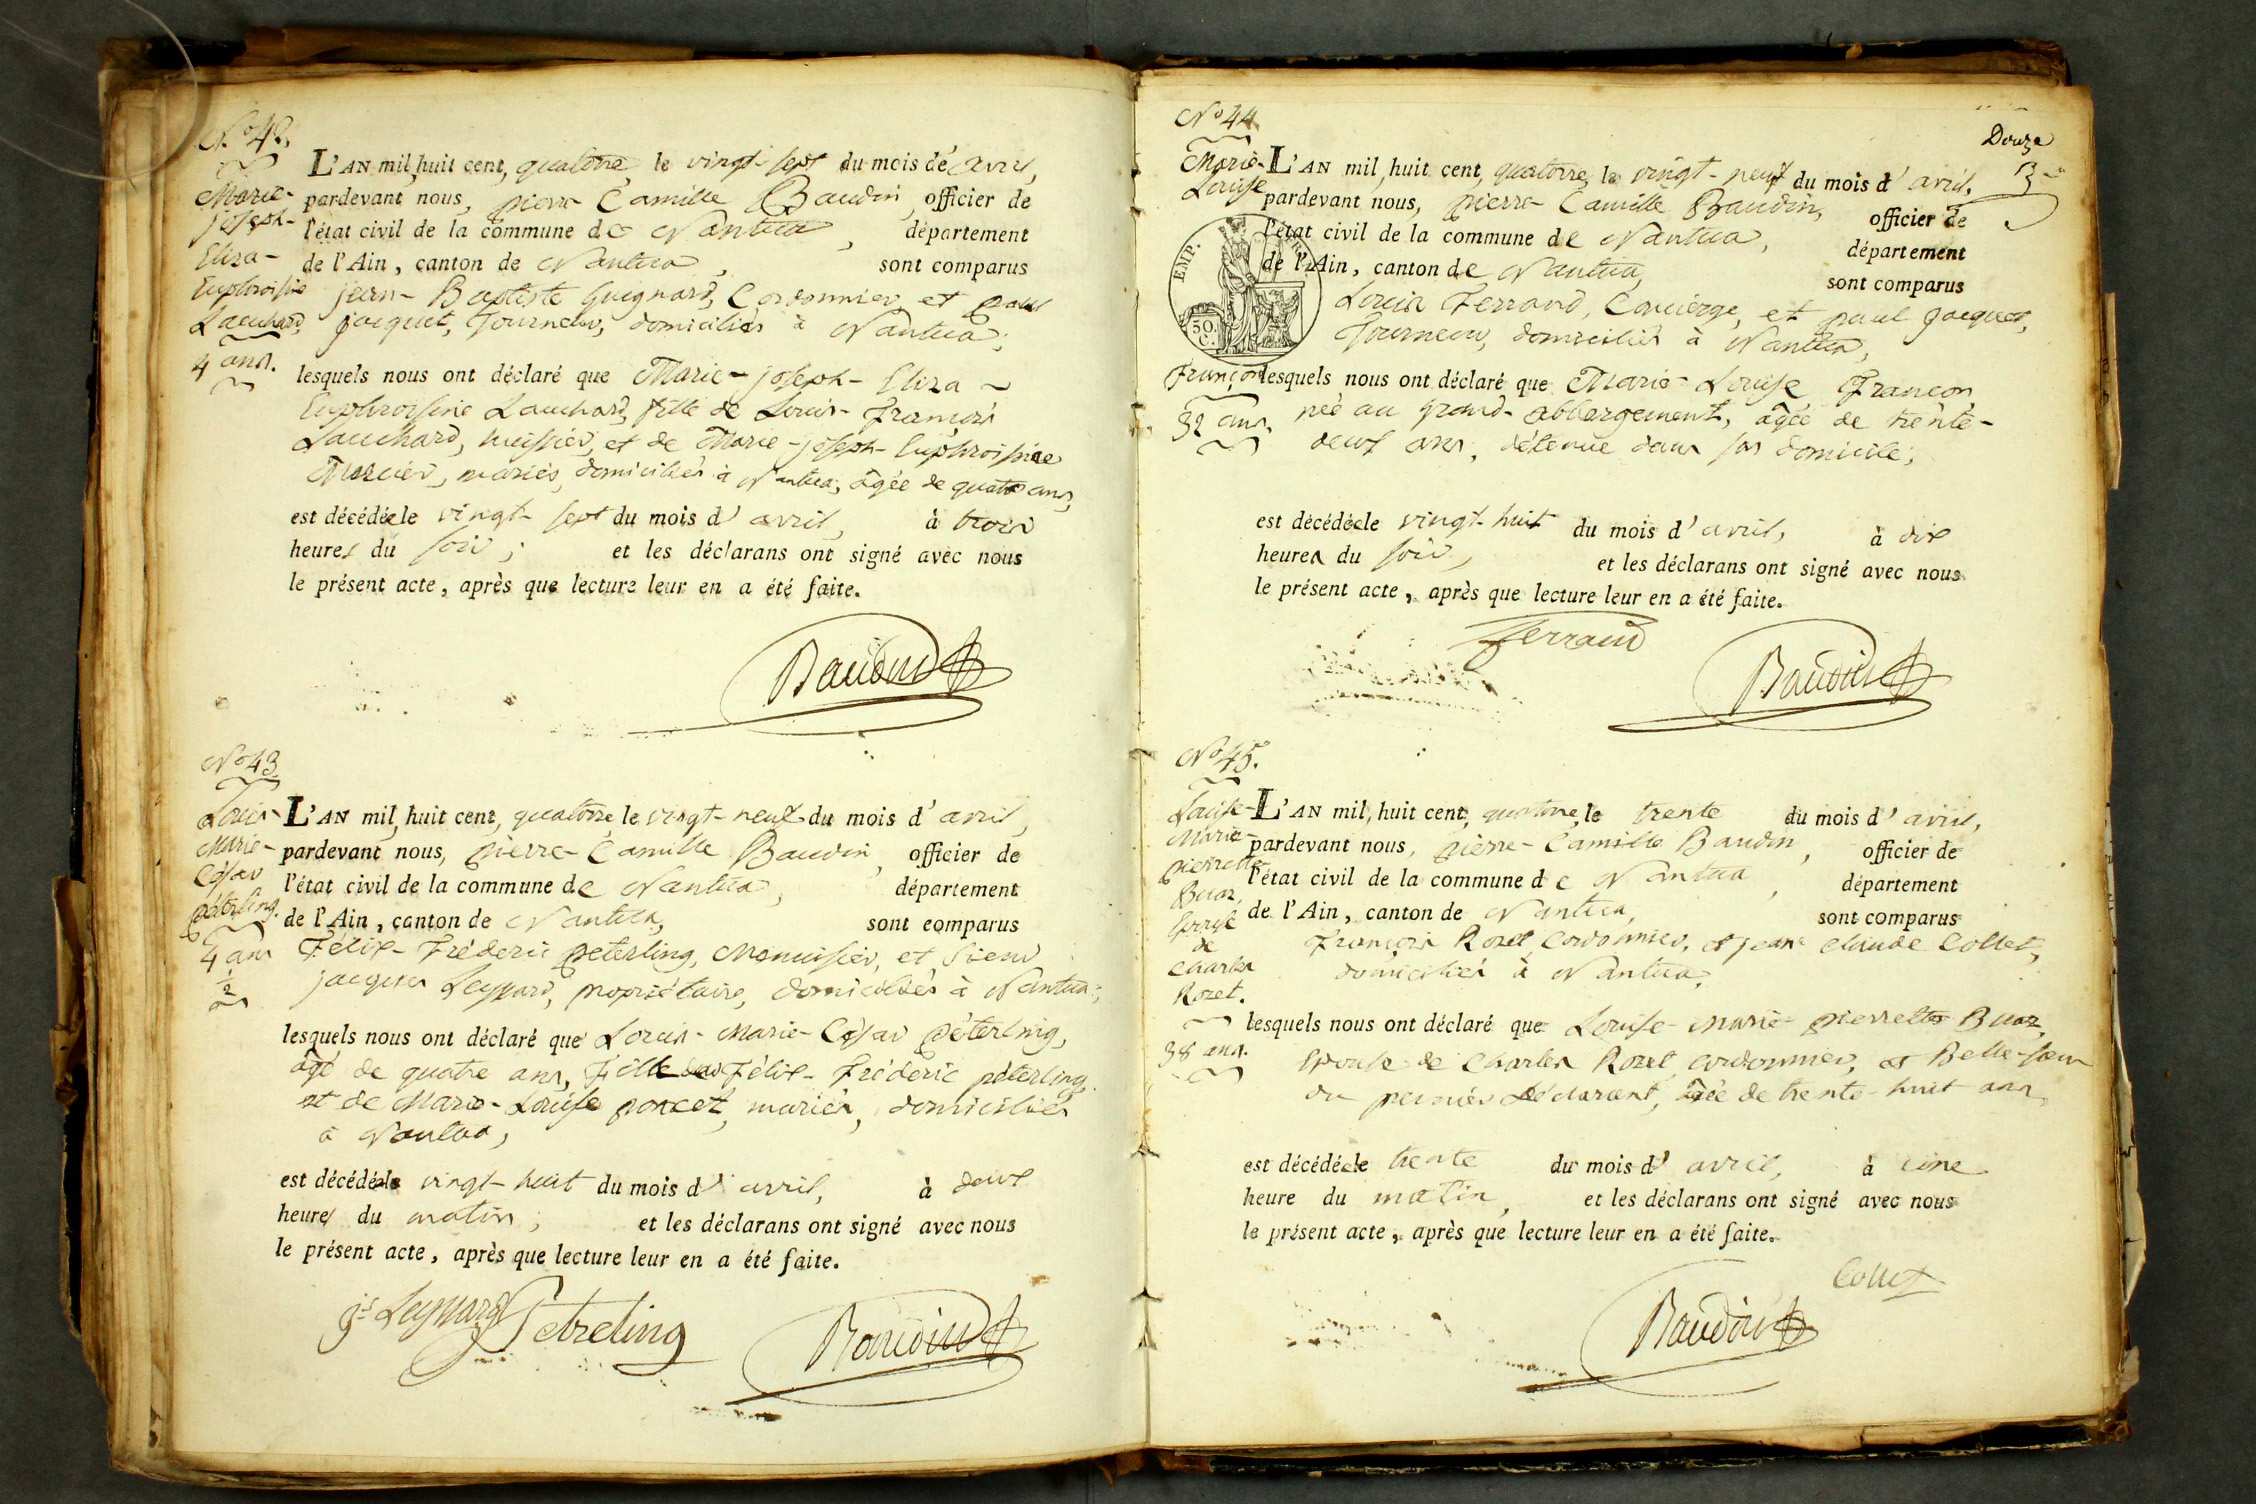 No 42.
Marie-
joseph-
Eliza-
Euphroisine
Lauchard,
4 ans.
L'AN mil, huit cent, quatorze, le vingt-sept du mois de avril,
pardevant nous, pierre Camille Baudin, officier de
l'état civil de la commune de Nantua, département
de l'Ain, canton de Nantua, sont comparus
jean-Baptiste Guignard, Cordonnier, et paul
jacquet, Tourneur, domiciliés à Nantua;
lesquels nous ont déclaré que Marie-joseph-Eliza
Euphroisine Lauchard, fille de Louis-François
Lauchard, huissier, et de Marie-joseph-Euphroisine
Mercier, mariés, domiciliés à Nantua, âgée de quatre ans,
est décédée le vingt-sept du mois d'avril, à trois
heures du soir; et les déclarans ont signé avec nous
le présent acte, après que lecture leur en a été faite.
Baudin
No 43
Louis-
Marie-
César
péterling.
4 ans
1/2
L'AN mil, huit cent, quatorze le vingt-neuf du mois d'avril,
pardevant nous, pierre-Camille Baudin, officier de
l'état civil de la commune de Nantua, département
de l'Ain, canton de Nantua, sont comparus
Félix-Fréderic peterling, Menuisier, et Sieur
jacques Leyssard, propriétaire, domiciliés à Nantua;
lesquels nous ont déclaré que Louis-Marie-César péterling,
âgé de quatre ans, Fils de Félix-Fréderic péterling
et de Marie-Louise poncet, mariés, domiciliés
à Nantua,
est décédé le vingt-huit du mois d'avril, à deux
heures du matin; et les déclarans ont signé avec nous
le présent acte, après que lecture leur en a été faite.
js Leyssard Petreling Baudin
No 44
Douze
B
Marie-
Louise
Françon
32 ans.
EMP.
50.
C.
L'AN mil, huit cent, quatorze, le vingt-neuf du mois d'avril,
pardevant nous, pierre-Camille Baudin, officier de
l'état civil de la commune de Nantua, département
de l'Ain, canton de Nantua, sont comparus
Louis Ferrand, Concierge, et paul jacquet,
Tourneur, domiciliés à Nantua,
lesquels nous ont déclaré que Marie-Louise Françon,
née au grand-abbergement, âgée de trente-
deux ans, détenue dans son domicile,
est décédée le vingt-huit du mois d'avril, à dix
heures du soir, et les déclarans ont signé avec nous
le présent acte, après que lecture leur en a été faite.
Ferrand
Baudin
No 45.
Louise-
Marie-
pierrette
Buaz,
épouse
de
Charles
Rozet.
38 ans.
L'AN mil, huit cent, quatorze, le trente du mois d'avril,
pardevant nous, pierre-Camille Baudin, officier de
l'état civil de la commune de Nantua, département
de l'Ain, canton de Nantua, sont comparus
François Rozet, Cordonnier, et jean claude Collet,
domiciliés à Nantua,
lesquels nous ont déclaré que Louise-Marie-pierrette Buaz,
épouse de Charles Rozet, cordonnier, et Belle-soeur
du premier déclarant, âgée de trente-huit ans,
est décédée le trente du mois d'avril, à une
heure du matin, et les déclarans ont signé avec nous
le présent acte, après que lecture leur en a été faite.
Collet
Baudin